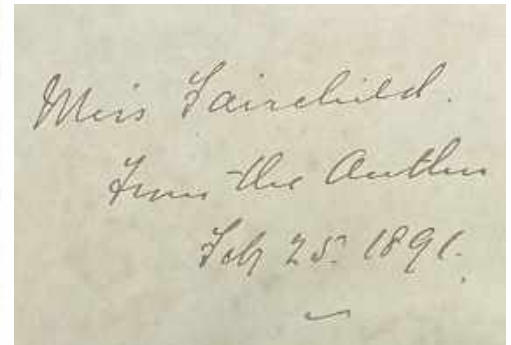 Miss Fairchild.
from the Author
Feby 25. 1891.